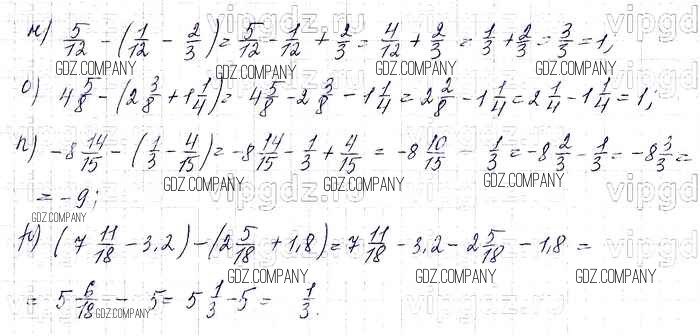 н) 5/12 - (1/12 - 2/3) = 5/12 - 1/12 + 2/3 = 4/12 + 2/3 = 1/3 + 2/3 = 3/3 = 1;
GDZ.COMPANY GDZ.COMPANY GDZ.COMPANY GDZ.COMPANY
о) 4 5/8 - (2 3/8 + 1 1/4) = 4 5/8 - 2 3/8 - 1 1/4 = 2 2/8 - 1 1/4 = 2 1/4 - 1 1/4 = 1;
GDZ.COMPANY GDZ.COMPANY GDZ.COMPANY GDZ.COMPANY
п) -8 14/15 - (1/3 - 4/15) = -8 14/15 - 1/3 + 4/15 = -8 10/15 - 1/3 = -8 2/3 - 1/3 = -8 3/3 =
GDZ.COMPANY GDZ.COMPANY GDZ.COMPANY GDZ.COMPANY
= -9;
GDZ.COMPANY
р) (7 11/18 - 3,2) - (2 5/18 + 1,8) = 7 11/18 - 3,2 - 2 5/18 - 1,8 =
GDZ.COMPANY GDZ.COMPANY GDZ.COMPANY GDZ.COMPANY
= 5 6/18 - 5 = 5 1/3 - 5 = 1/3.
GDZ.COMPANY